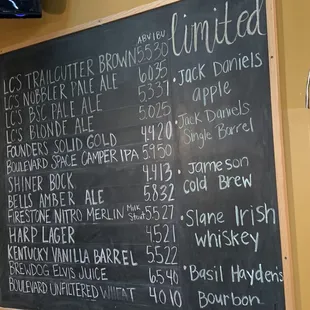 ABV IBU
LC'S TRAILCUTTER BROWN 5.5 30
LC'S NOBBLER PALE ALE 6.0 35
LC'S BSC PALE ALE 5.3 37
LC'S BLONDE ALE 5.0 25
FOUNDERS SOLID GOLD 4.4 20
BOULEVARD SPACE CAMPER IPA 5.9 50
SHINER BOCK 4.4 13
BELLS AMBER ALE 5.8 32
FIRESTONE NITRO MERLIN Milk Stout 5.5 27
HARP LAGER 4.5 21
KENTUCKY VANILLA BARREL 5.5 22
BREWDOG ELVIS JUICE 6.5 40
BOULEVARD UNFILTERED WHEAT 4.0 10
limited
• Jack Daniels
apple
• Jack Daniels
Single Barrel
• Jameson
cold Brew
• Slane Irish
whiskey
• Basil Haydens
Bourbon